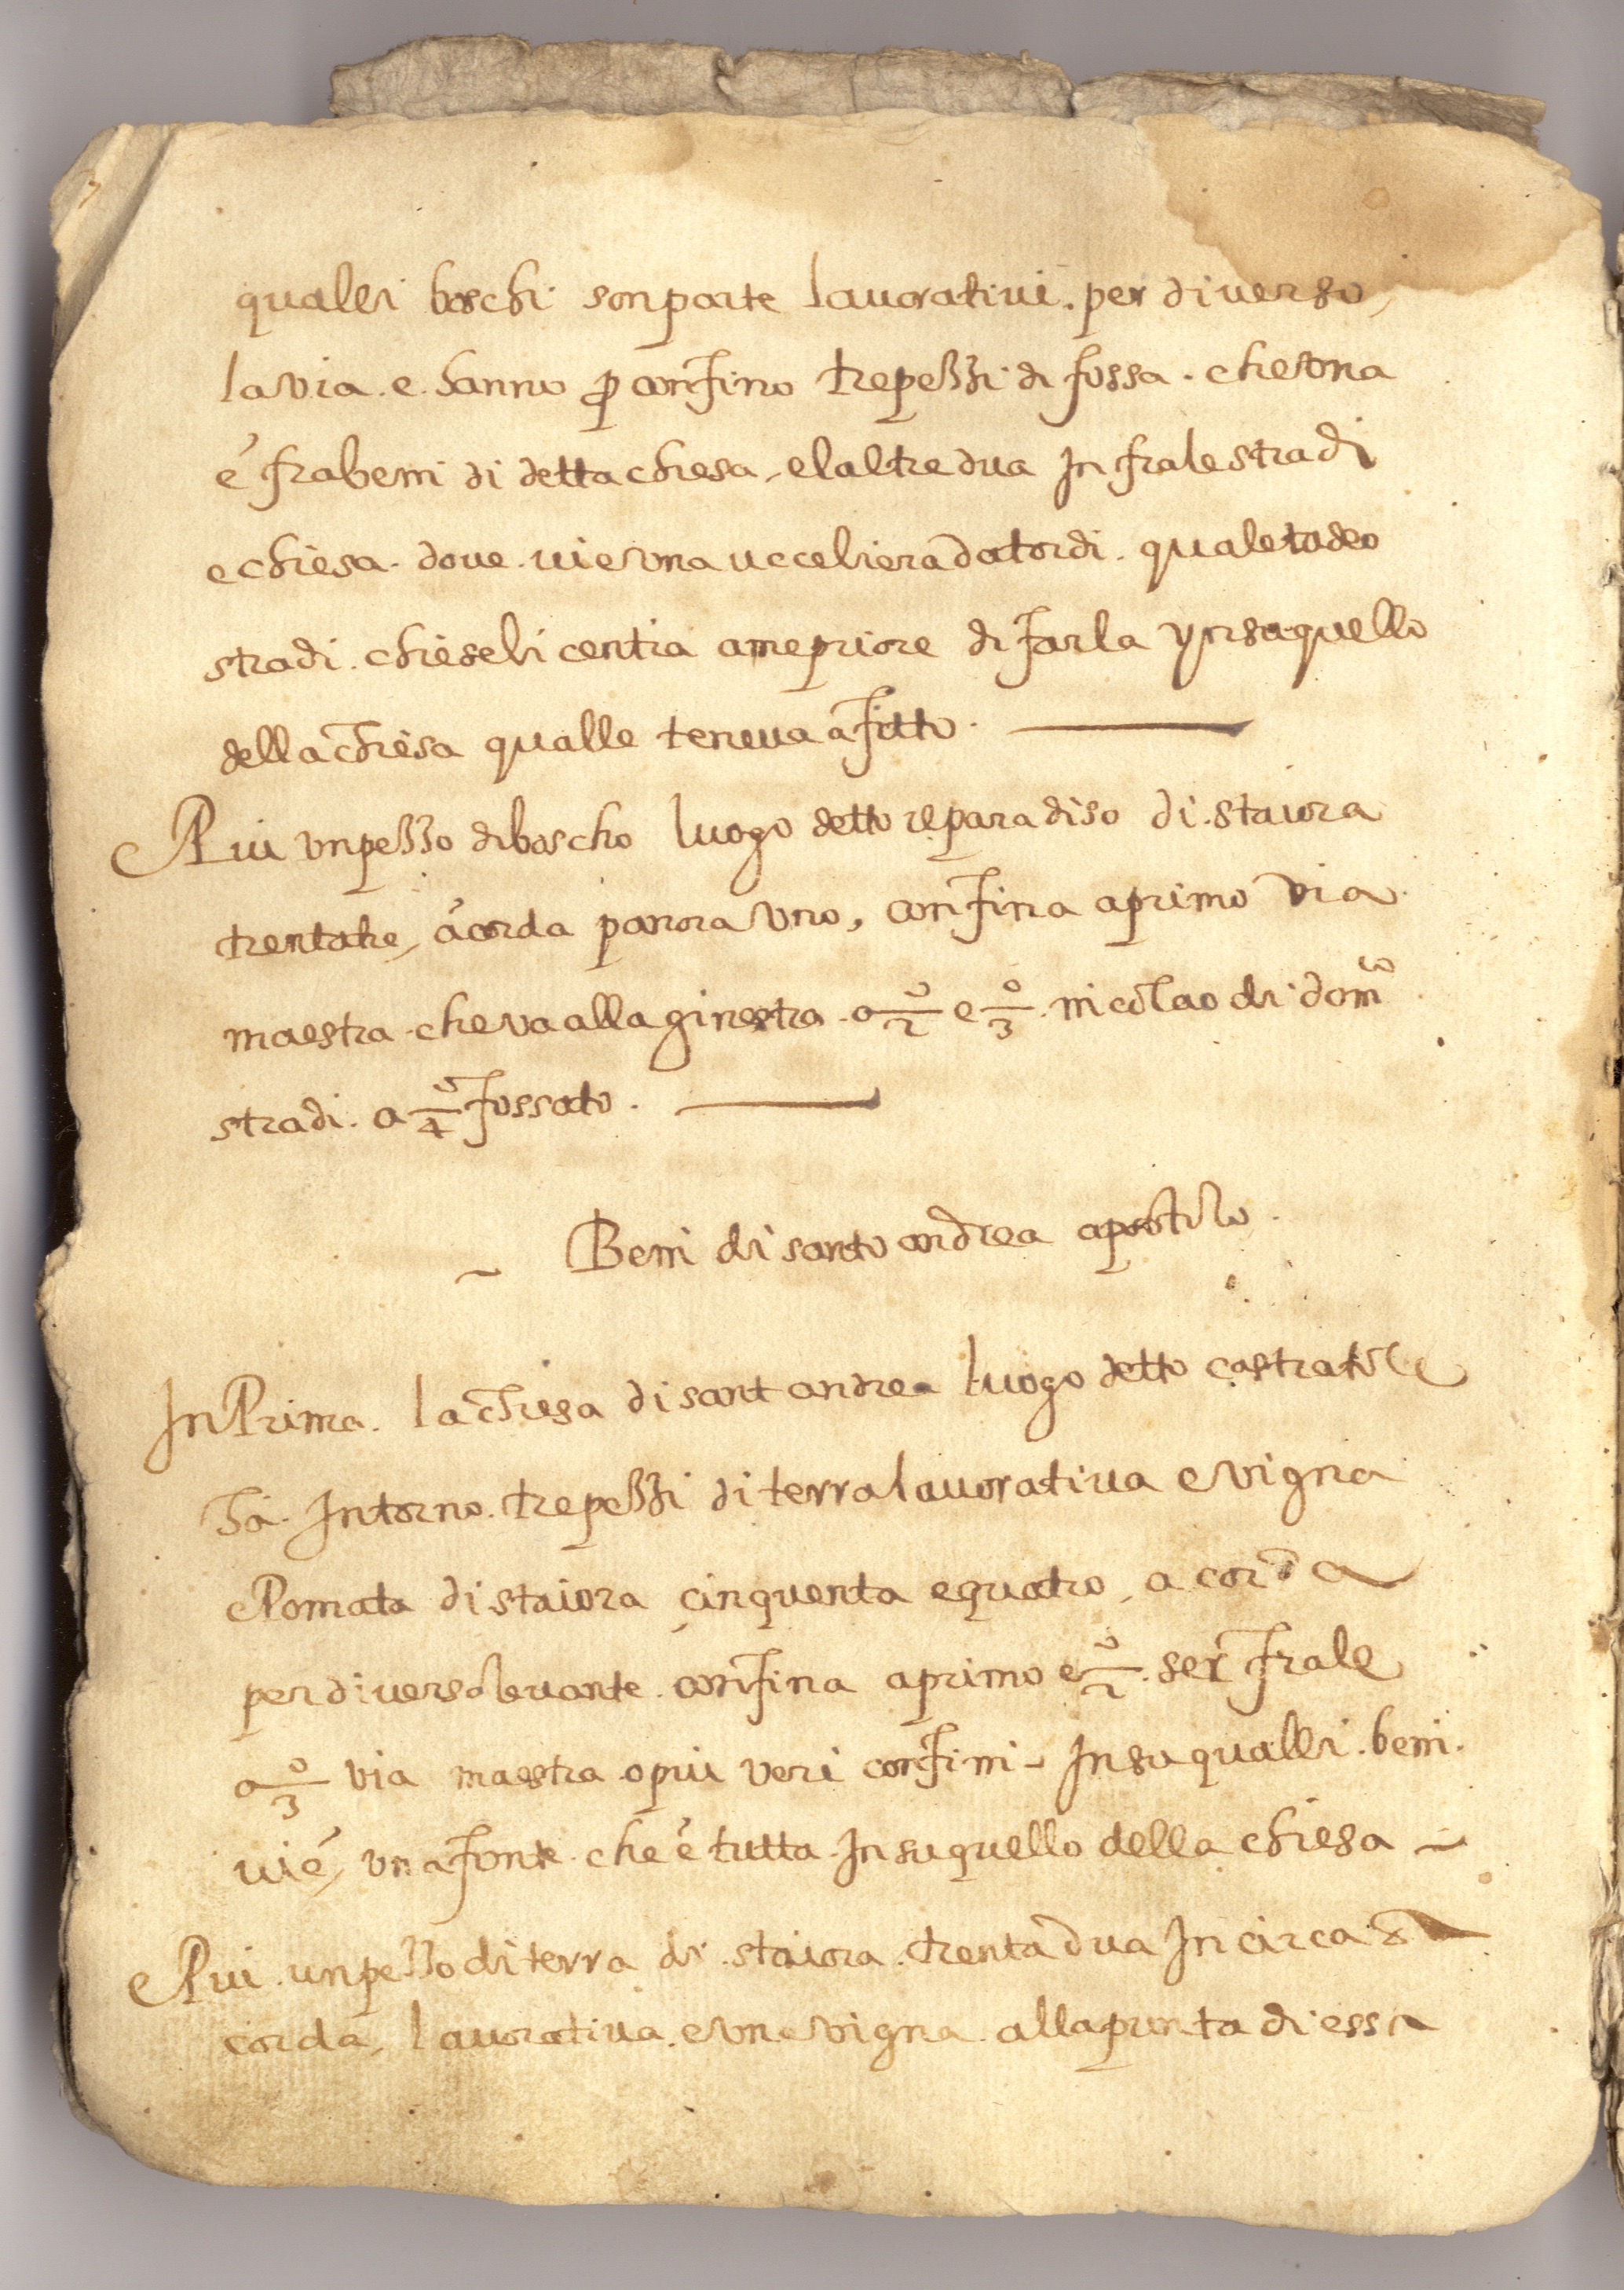 qualli boschi son parte lauoratiui. per diverso
la via. e. hanno p confino tre pezzi di fossa. che vna
é fra beni di detta chiesa, e l altre dua In fra le stradi
e chiesa. doue. ui e vna vcceliera da tordi. quale tadeo
stradi. chiese licentia a me priore di farla yn su quello
della chiesa qualle teneua a fitto.
Piu vn pezzo di boscho luogo detto il paradiso di. staiora
trenta tre, á corda panora vno, confina a primo via
maestra. che va alla ginestra. a o/2 e o/3. nicolao di dom.co
stradi. a o/4 fossato.
Beni di santo andrea apostolo.
In Prima. la chiesa di sant andrea luogo detto
ha. Intorno. tre pezzi di terra lauoratiua e vigna
e Pomata di staiora cinquenta e quatro, a corda
per diverso levante. confina a primo e o/2. ser frale
a o/3 via maestra o piu veri confini - In su qualli. beni.
ui é, vna fonte. che é tutta. In su quello della chiesa ~
e Piu. un pezzo di terra di. staiora. trenta dua In circa a
corda, lauoratiua. e vna vigna. alla punta di essa